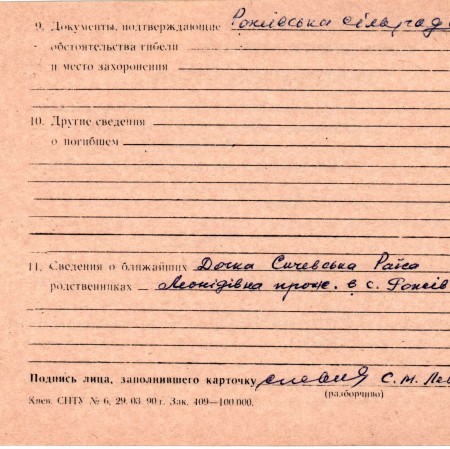 9. Документы, подтверждающие Рокіївська сільрад
обстоятельства гибели
и место захоронения
10. Другие сведения
о погибшем
11. Сведения о ближайших Дочка Сичевська Раїса
родственниках Леонідівна прож. в с.
Подпись лица, заполнившего карточку С. М.
(разборчиво)
Киев. СПТУ № 6, 29. 03. 90 г. Зак. 409—100.000.